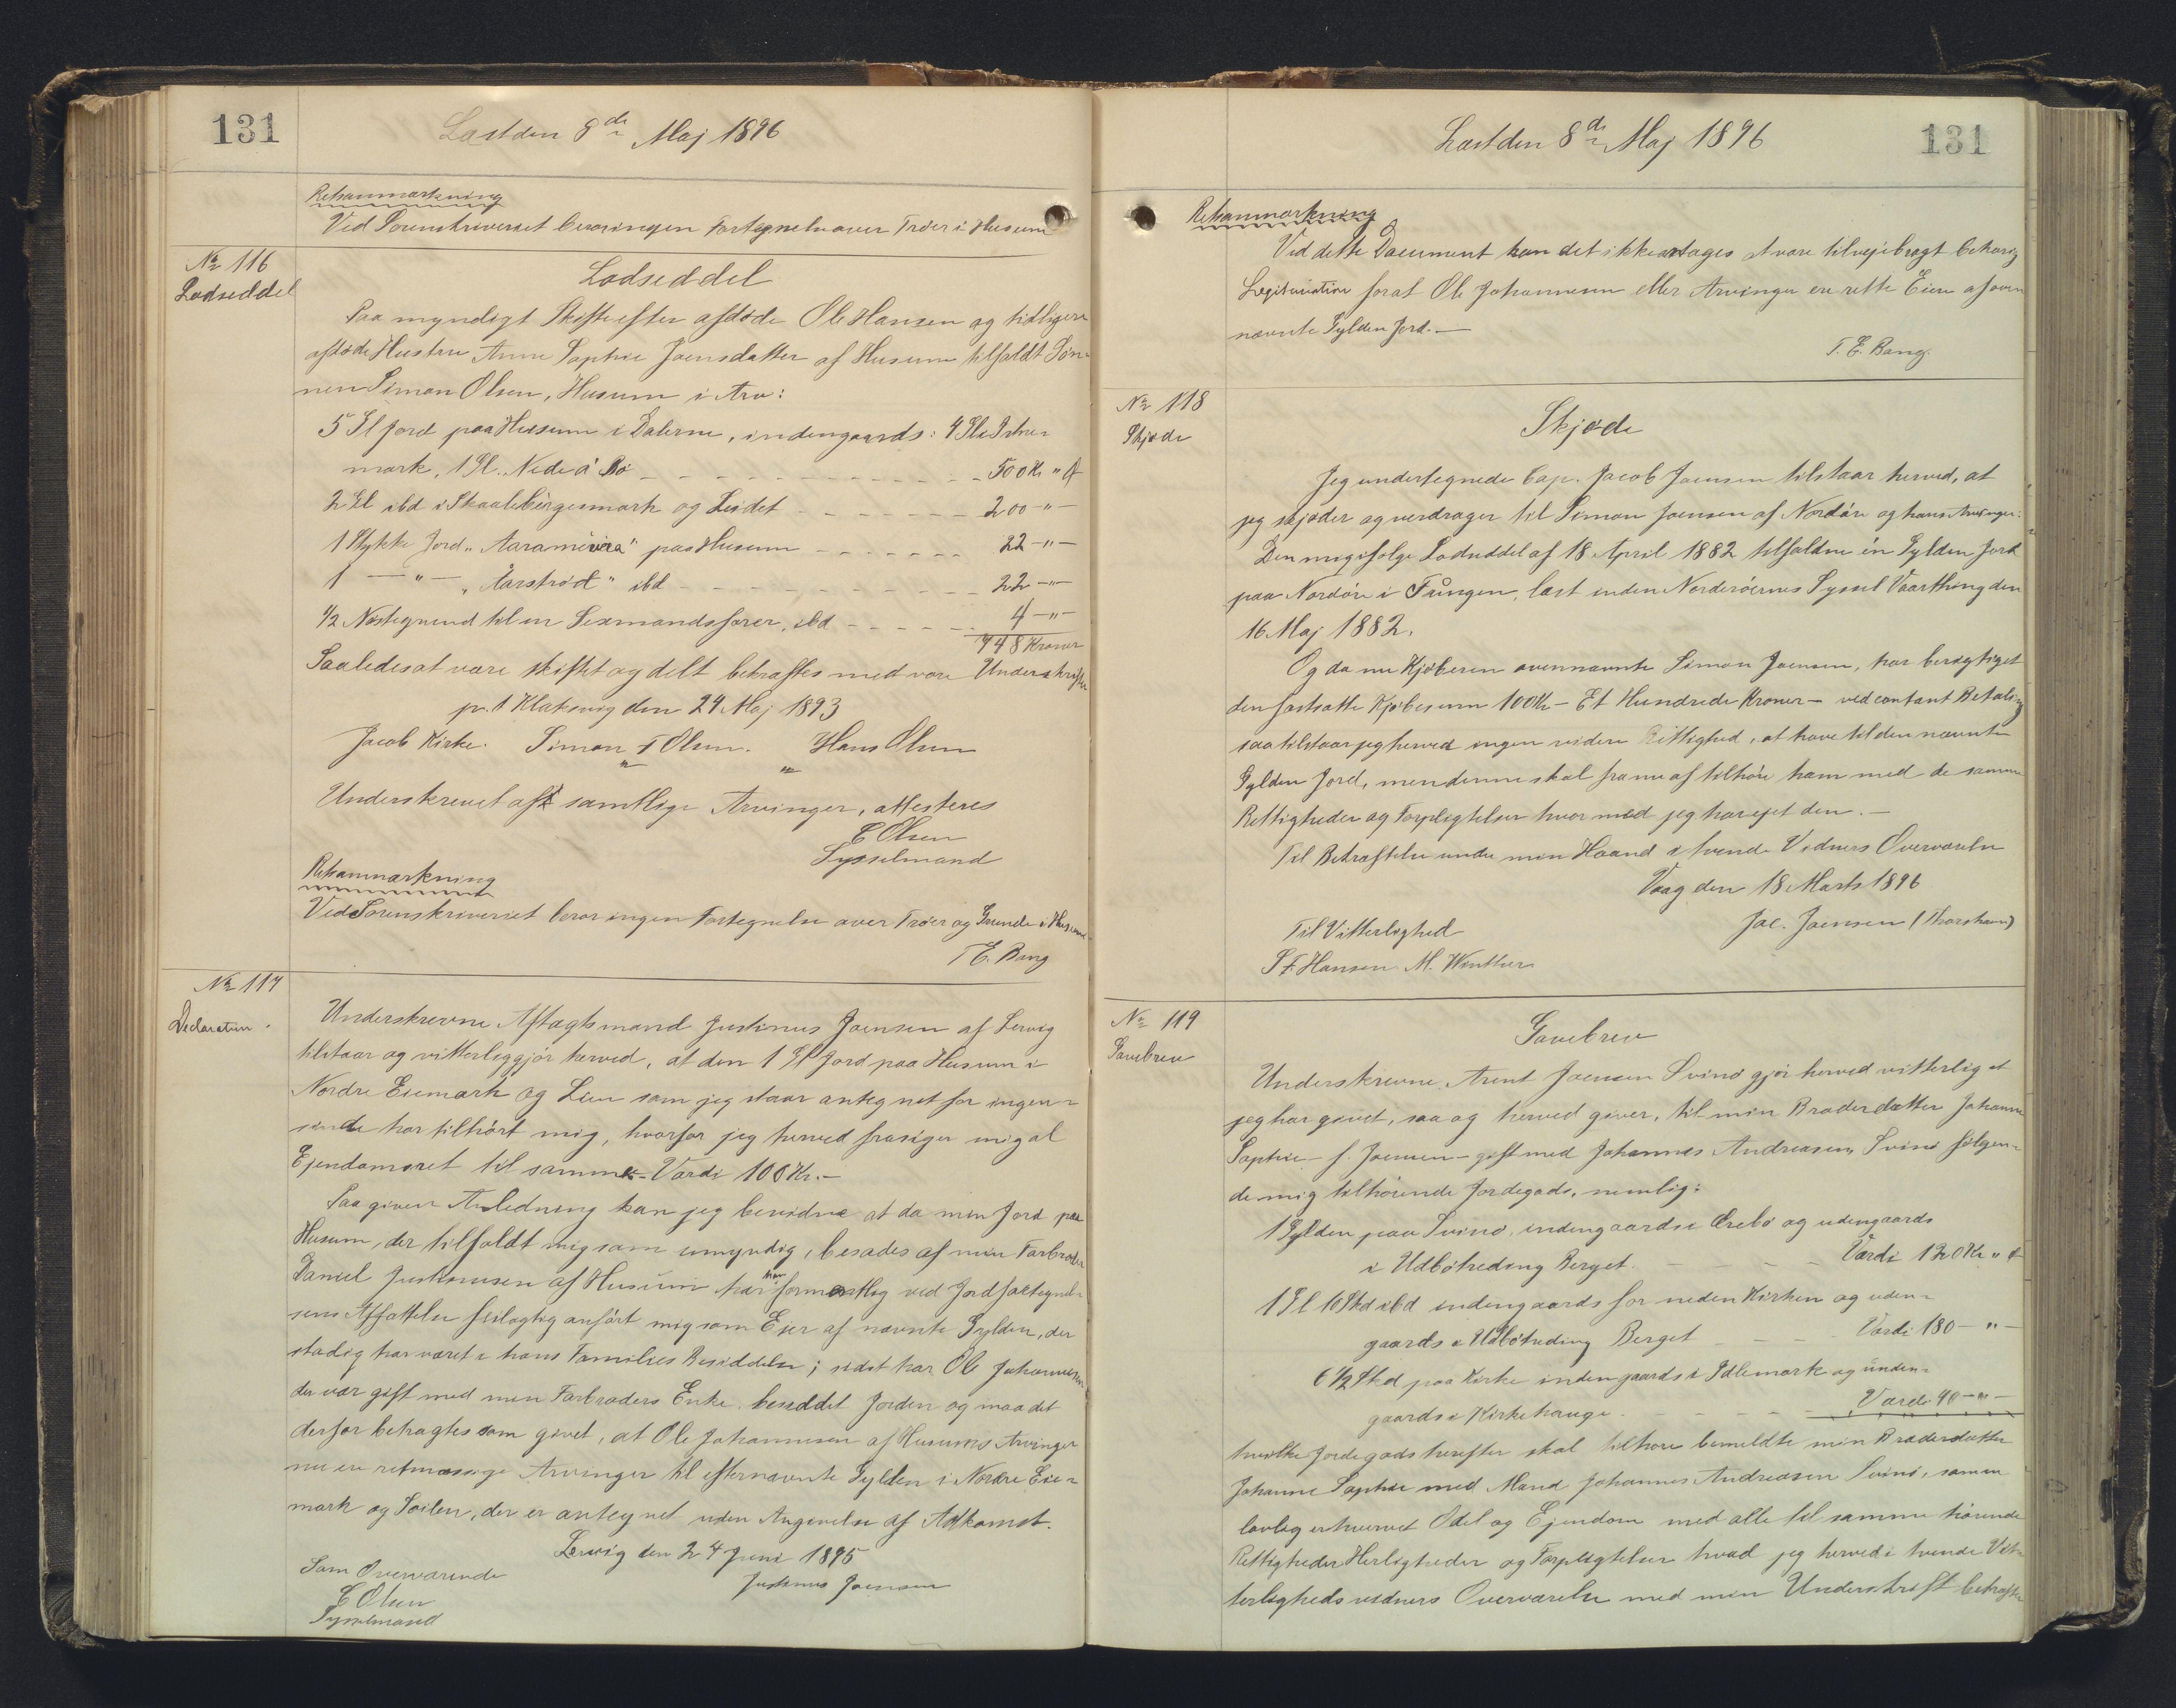 131
Læst den 8de Maj 1896
Retsanmærkning
Ved Sorenskriveriet beror ingen Fortegnelse over Tröer i Husum
No 116
Lodseddel
Lodseddel
Paa myndigt Skifte efter afdöde Ole Hansen og tidligere
afdöde Hustru Anne Sophie Joensdatter af Husum tilfaldt Søn-
nen Simon Olsen, Husum i Arv:
5 Gl Jord paa Husum i Dalerne, indengaards: 4 Gl i
mark, 1 Gl. Nede á Bö - - - 500 Kr " Ø
2 Gl ibd i Skaalebirgesmark og Leidet - - - 200 - " -
1 Stykke Jord " " paa Husum - - - 22 - " -
1 - " - " " ibd - - - 22 - " -
1/2 Nöstegrund til en Sexmandsfarer, ibd - - - 4 - " -
748 Kroner
Saaledes at være skiftet og delt bekræftes med vore Underskrifter
p.t Klaksvig den 24 Maj 1893
Jacob Kirke. Simon F Olsen. Hans Olsen
Underskrevet af samtlige Arvinger, attesteres
E Olsen
Sysselmand
Retsanmærkning
Ved Sorenskriveriet beror ingen Fortegnelse over Tröer og Grunde i Husum
T E. Bang
No 117
Declaration.
Underskrevne Aftægtsmand Justinus Joensen af Lervig
tilstaar og vitterliggjör herved, at den 1 Gl Jord paa Husum i
Nordre Eiemark og Leen som jeg staar antegnet for ingen-
sinde har tilhört mig, hvorfor jeg herved frasiger mig al
Ejendomsret til samme - Værdi 100 Kr. -
Paa given Anledning kan jeg bevidne at da min Jord paa
Husum, der tilfaldt mig som umyndig, besades af min Farbroder
Daniel Justinussen af Husum har han formentlig ved Jordfortegnel-
sens Affattelse feilagtig anfört mig som Ejer af nævnte Gylden, der
stadig har været i hans Families Besiddelse; sidst har Ole Johannesen
der var gift med min Farbroders Enke besiddet Jorden og maa det
derfor betragtes som givet, at Ole Johannesen af Husums Arvinger
nu ere retmæssige Arvinger til efternævnte Gylden i Nordre Eie-
mark og , der er antegnet uden Angivelse af Adkomst.
Lervig den 24 Juni 1895
Som Overværende Justinus Joensen
E Olsen
Sysselmand
Læst den 8de Maj 1896
131
Retsanmærkning
Ved dette Document kan det ikke antages at være tilvejebragt behörig
Legitimation for at Ole Johannesen eller Arvinger ere rette Eiere af oven
nævnte Gylden Jord. -
T. E. Bang.
No 118
Skjöde
Skjöde
Jeg undertegnede Cap. Jacob Joensen tilstaar herved, at
jeg skjöder og overdrager til Simon Joensen af Nordöre og hans Arvinger:
Den mig ifölge Lodseddel af 18 April 1882 tilfaldne én Gylden Jord
paa Nordöre i Tungen, læst inden Norderöernes Syssel Vaarthing den
16 Maj 1882.
Og da nu Kjöberen ovennævnte Simon Joensen, har berigtiget
den fastsatte Kjöbesum 100 Kr - Et Hundrede Kroner - ved contant Betaling
saa tilstaar jeg herved ingen videre Rettighed, at have til den nævnte
Gylden Jord, men denne skal fra nu af tilhöre ham med de samme
Rettigheder og Forpligtelser hvormed jeg har ejet den. -
Til Bekræftelse under min Haand i tvende Vidners Overværelse
Vaag den 18 Marts 1896
Til Vitterlighed Jac. Joensen (Thorshavn)
S F Hansen M. Winther
No 119
Gavebrev
Gavebrev
Underskrevne Arent Joensen Svinö gjör herved vitterligt at
jeg har givet, saa og herved giver, til min Broderdatter Johanne
Sophie f. Joensen - gift med Johannes Andreasen, Svinö fölgen-
de mig tilhörende Jordegods, nemlig:
1 Gylden paa Svinö, indengaards i Örebö og udengaards
i Udbötreding Berget - - - Værdi 120 Kr " Ø
1 Gl 10 Skd ibd indengaards for neden Kirken og uden-
gaards i Udbötreding Berget - - - Værdi 180 - " -
6 1/2 Skd paa Kirke indengaards i Idlemark og uden-
gaards i Kirkehauge - - - Værdi 40 - " -
hvilke Jordegods herefter skal tilhöre bemeldte min Broderdatter
Johanne Sophie med Mand Johannes Andreasen Svinö, som en
lovlig erhvervet Odel og Ejendom med alle til samme hörende
Rettigheder Herligheder og Forpligtelser hvad jeg herved i tvende Vit-
terlighedsvidners Overværelse med min Underskrift bekræfter